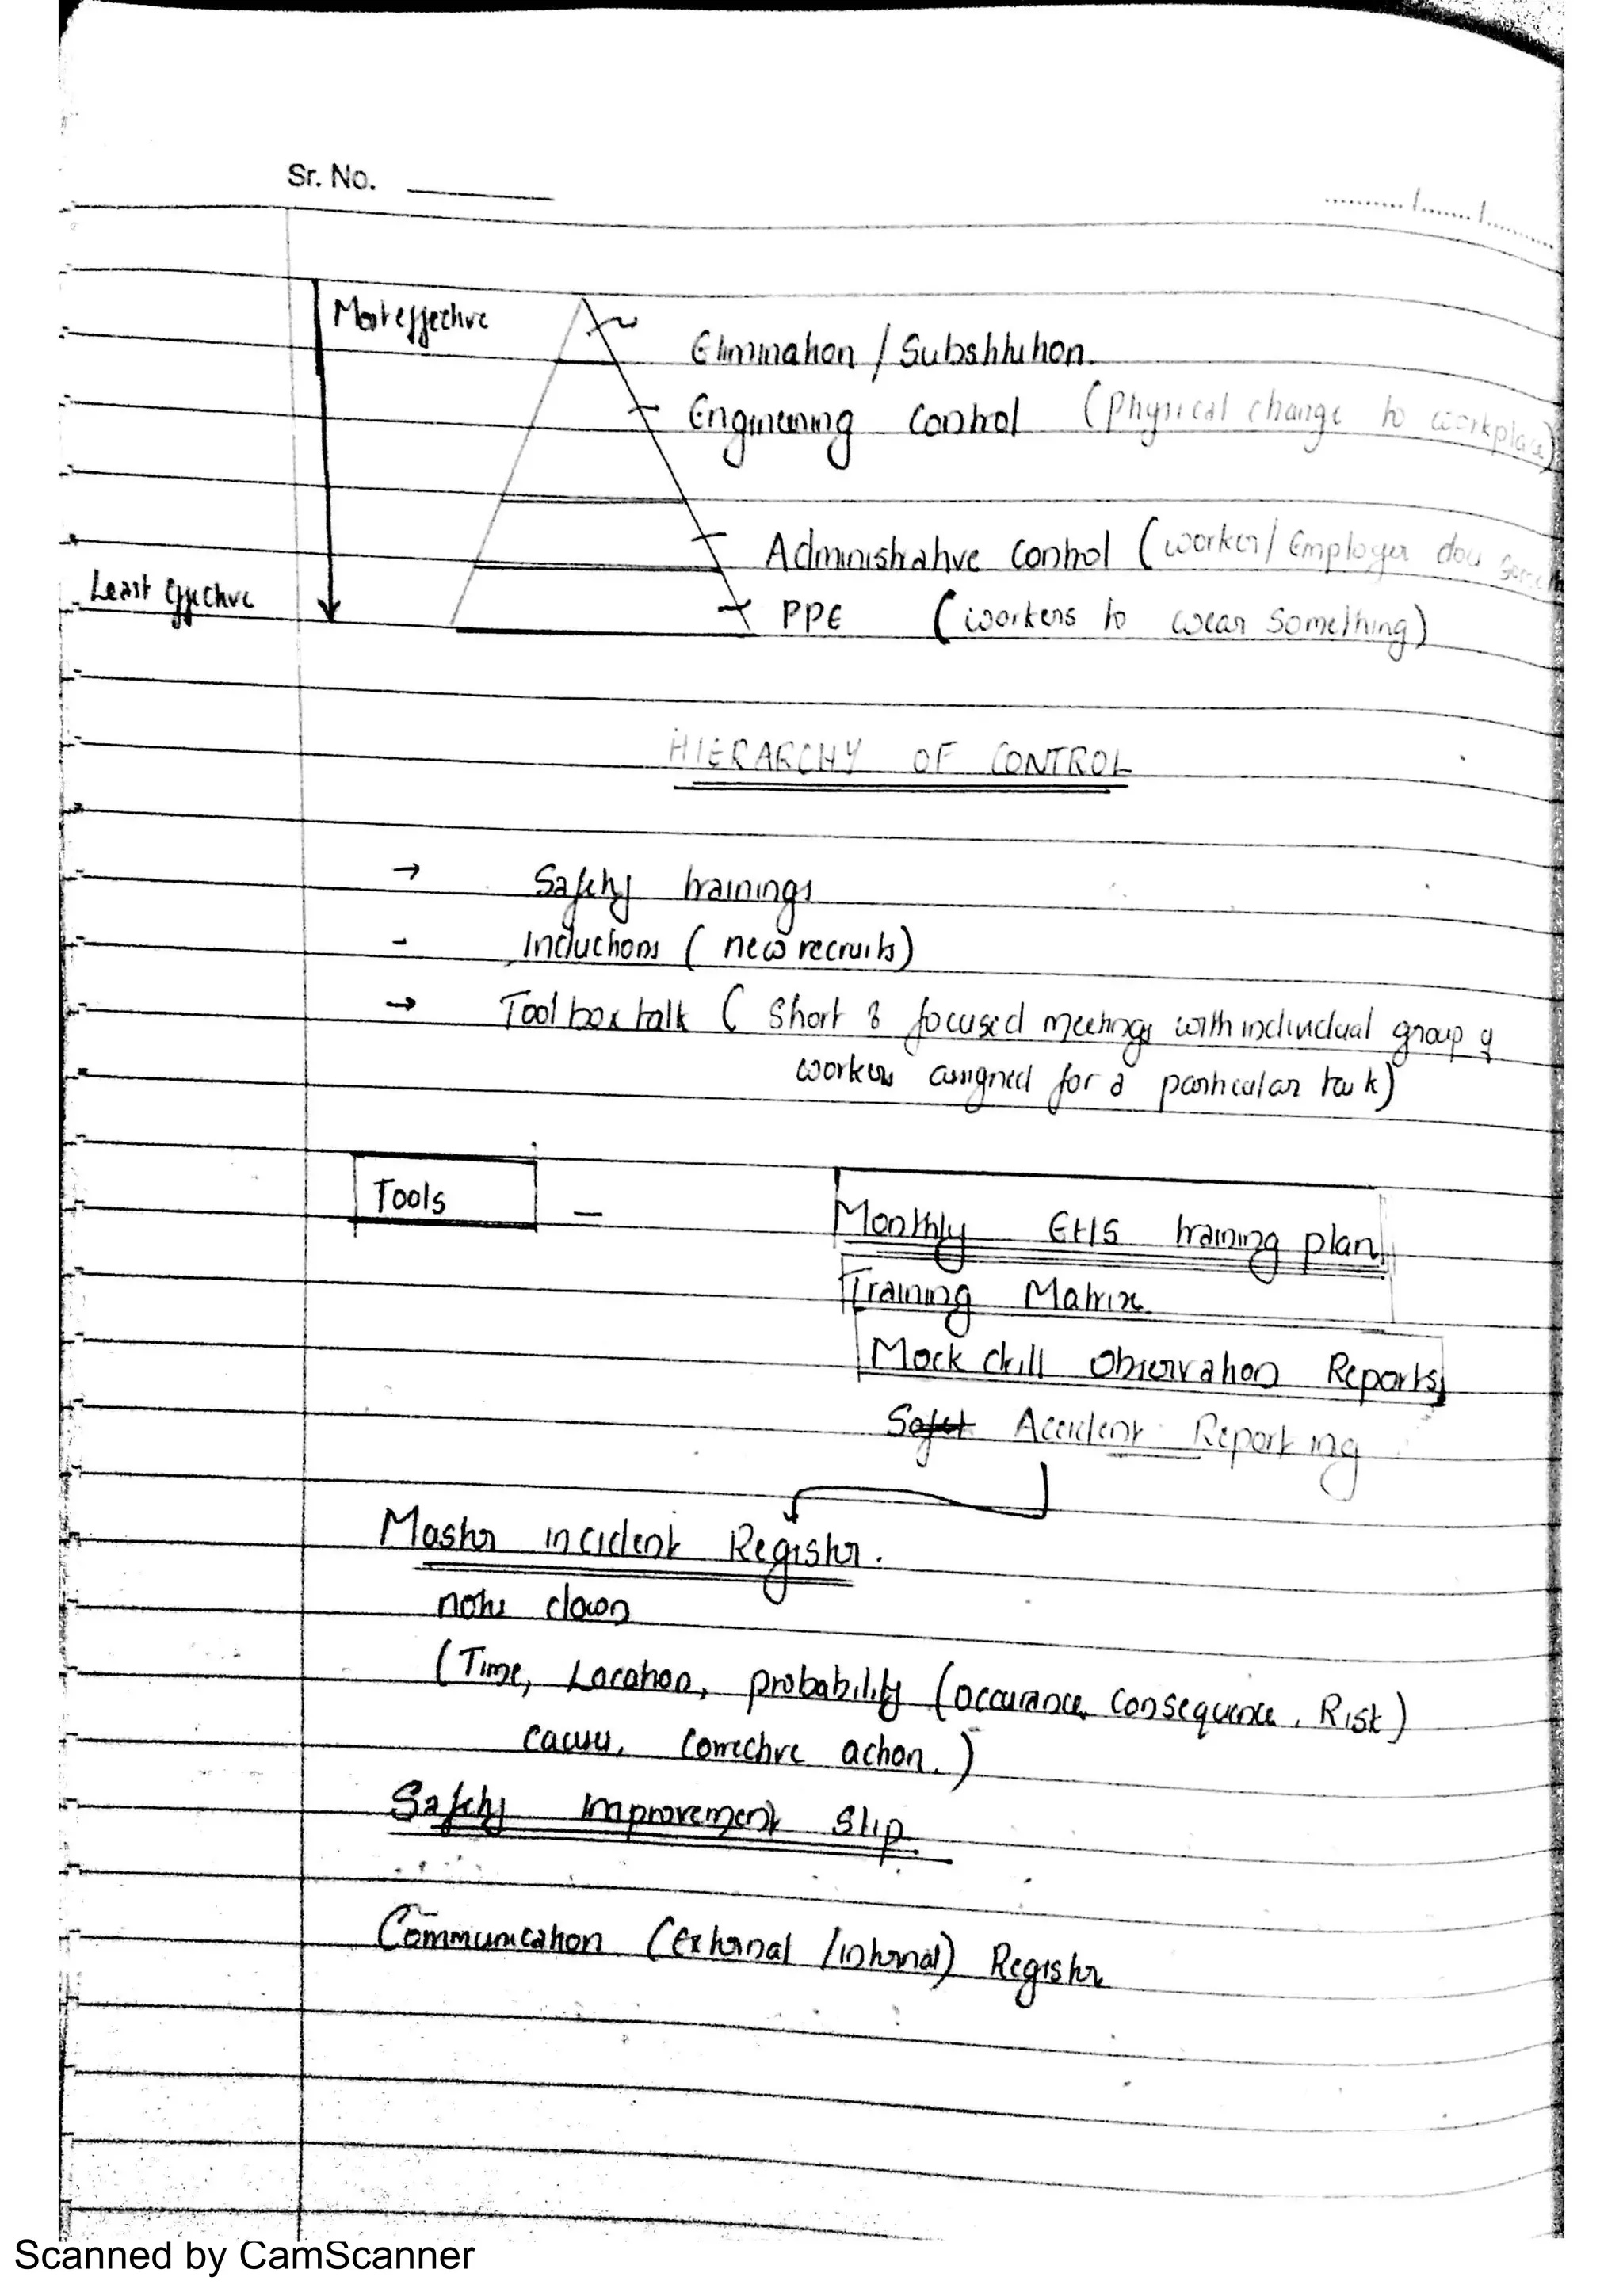 Sr. No.
Most effective
Elimination / Substitution.
Engineering Control (Physical change to workplace)
Administrative Control (worker/Employer does
Least Effective
PPE (workers to wear something)
HIERARCHY OF CONTROL
→ Safety trainings
- Inductions ( new recruits)
→ Tool box talk ( Short & focused meetings with individual group of
workers assigned for a particular task)
Tools - Monthly EHS training plan
Training Matrix
Mock drill Observation Reports
Safet Accident Reporting
Master incident Register.
note down
(Time, Location, probability (occurance, consequence, Risk)
cause, corrective action.)
Safety Improvement Slip
Communication (External /internal) Register
Scanned by CamScanner